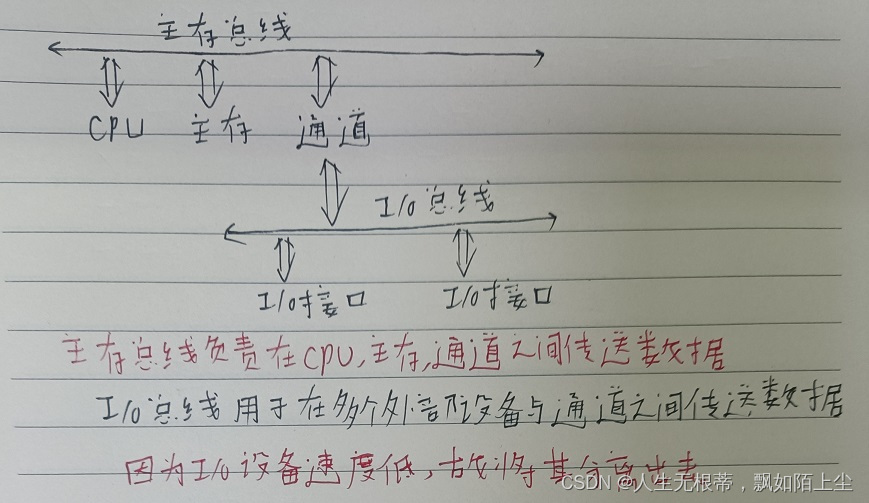 主存总线
CPU 主存 通道
I/O总线
I/O接口 I/O接口
主存总线负责在CPU,主存,通道之间传送数据
I/O总线用于在多个外部设备与通道之间传送数据
因为I/O设备速度低,故将其分离出去
CSDN @人生无根蒂，飘如陌上尘